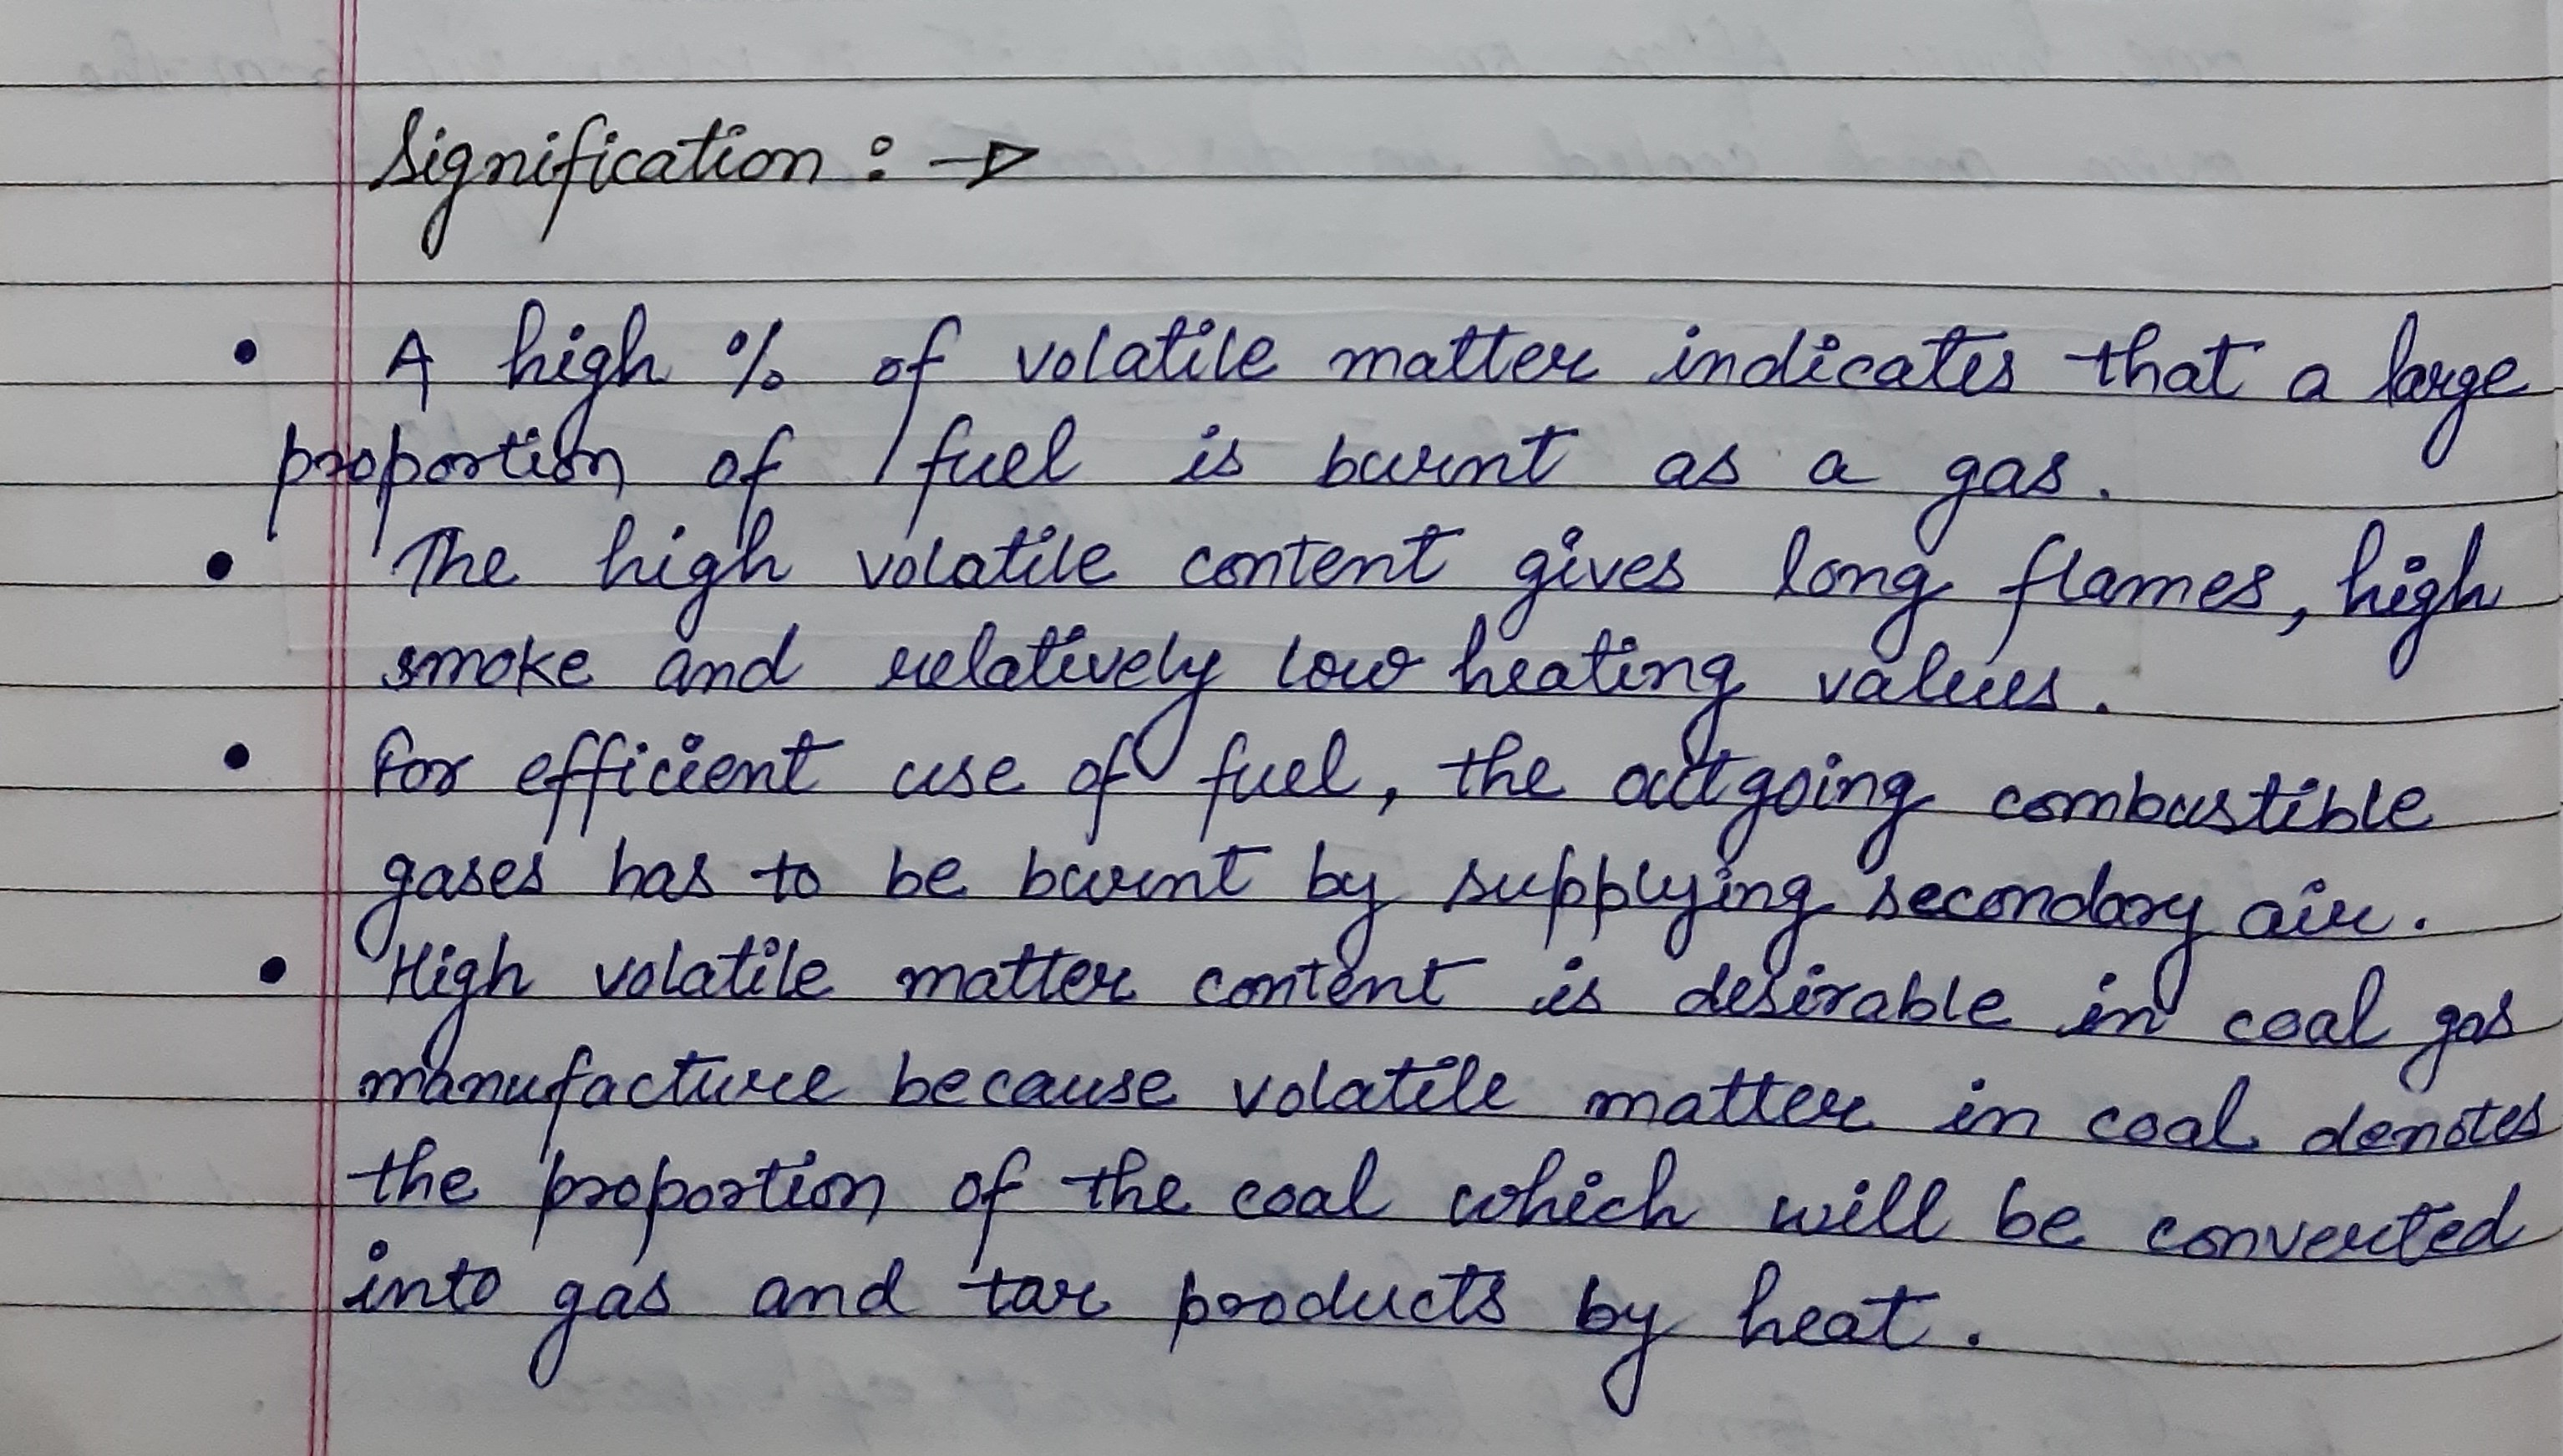 Signification : →
• A high % of volatile matter indicates that a large
proportion of fuel is burnt as a gas.
• The high volatile content gives long flames, high
smoke and relatively low heating values.
• For efficient use of fuel, the outgoing combustible
gases has to be burnt by supplying secondary air.
• High volatile matter content is desirable in coal gas
manufacture because volatile matter in coal denotes
the proportion of the coal which will be converted
into gas and tar products by heat.